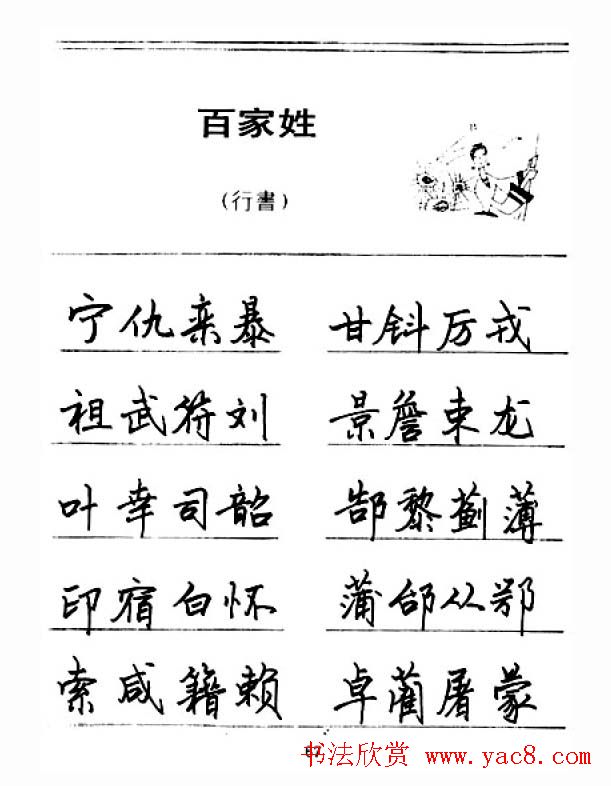 百家姓
(行書)
宁仇栾暴 甘钭厉戎
祖武符刘 景詹束龙
叶幸司韶 郜黎蓟薄
印宿白怀 蒲邰从鄂
索咸籍赖 卓蔺屠蒙
书法欣赏 www.yac8.com